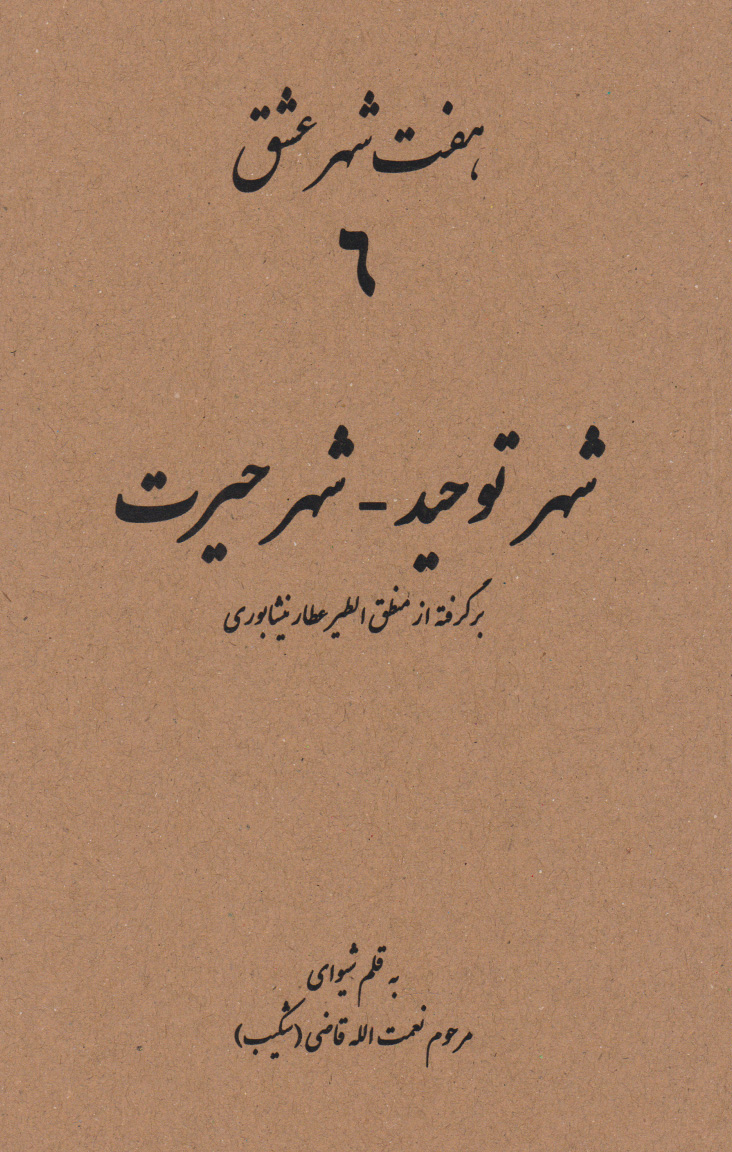 هفت شهر عشق
٦
شهر توحید - شهر حیرت
برگرفته از منطق الطیر عطار نیشابوری
به قلم شیوای
مرحوم نعمت الله قاضی (شکیب)